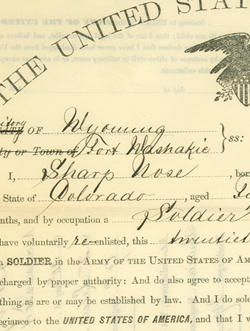 THE UNITED STATE
itory
OF Wyoming
ty or Town of Fort Washakie } ss:
I, Sharp Nose, bor
State of Colorado, aged
nths, and by occupation a Soldier
have voluntarily re-enlisted, this
SOLDIER in the ARMY OF THE UNITED STATES OF AM
charged by proper authority: And do also agree to accept
thing as are or may be established by law. And I do sol
egiance to the UNITED STATES OF AMERICA, and that I w